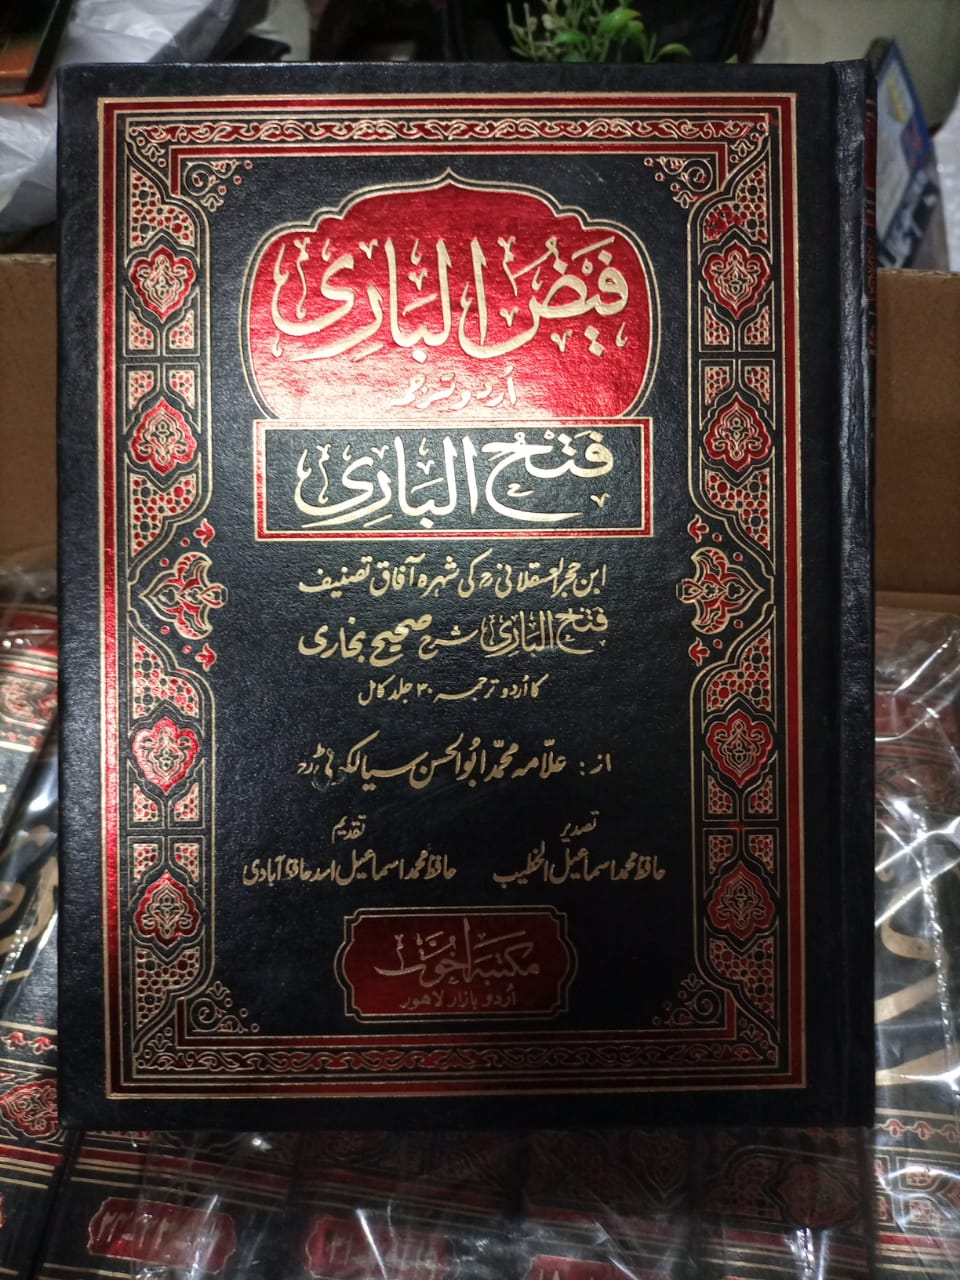 فَیْضُ البَارِی
اُردو ترجمہ
فَتْحُ البَارِی
ابن حجر العسقلانیؒ کی شہرہ آفاق تصنیف
فتح الباری شرح صحیح بخاری
کا اُردو ترجمہ ۳۰ جلد کامل
از: علّامہ محمّد ابوُالحسن سیالکوٹیؒ
تصدیر
تقدیم
حافظ محمد اسماعیل الخطیب
حافظ محمد اسماعیل اسد حافظ آبادی
مکتبہ اخوّت
اُردو بازار لاہور